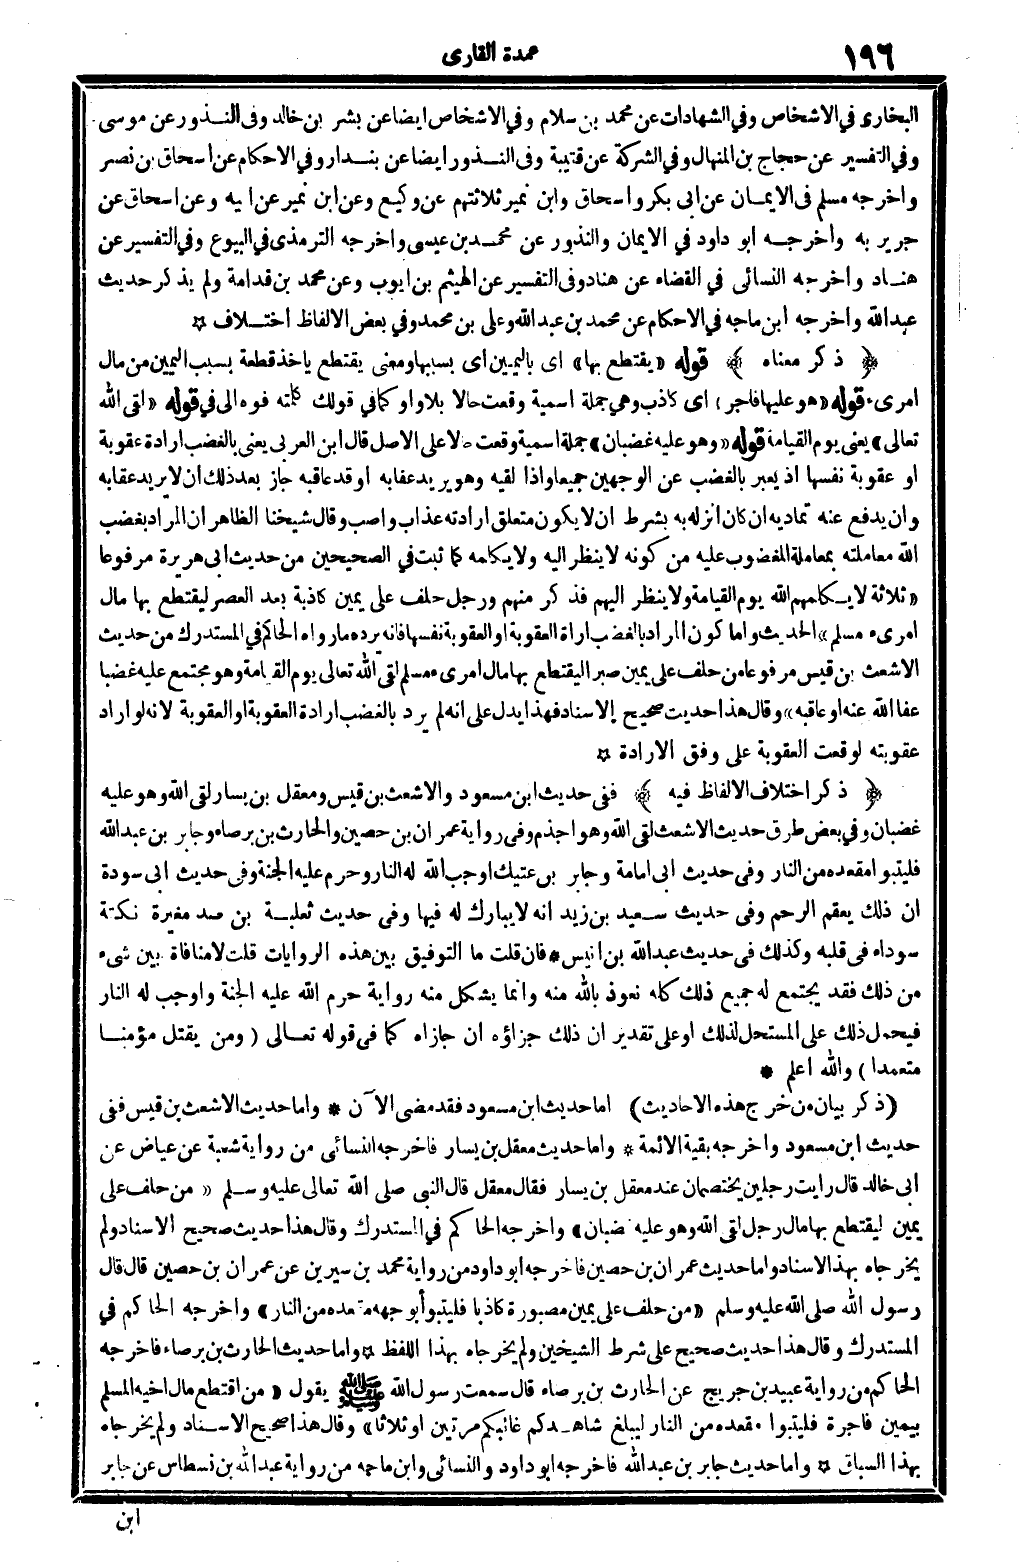 ١٩٦
عمدة القارى
البخارى في الاشخاص وفي الشهادات عن محمد بن سلام وفي الاشخاص ايضا عن بشر بن خالد وفى النـذور عن موسى
وفي التفسير عن حجاج بن المنهال وفي الشركة عن قتيبة وفى النـذور ايضا عن بنـدار وفي الاحكام عن اسحاق بن نصر
واخرجه مسلم فى الايمـان عن ابى بكر واسحاق وابن نمير ثلاثتهم عن وكيع وعن ابن نمير عن ابيه وعن اسحاق عن
جرير به واخرجـه ابو داود في الايمان والنذور عن محمـد بن عيسى واخرجه الترمذى في البيوع وفي التفسير عن
هنـاد واخرجه النسائى في القضاء عن هناد وفى التفسير عن الهيثم بن ايوب وعن محمد بن قدامة ولم يذكر حديث
عبدالله واخرجه ابن ماجه في الاحكام عن محمد بن عبدالله وعلى بن محمد وفي بعض الالفاظ اختـلاف ☆
﴿ ذكر معناه ﴾ قوله «يقتطع بها» اى باليمين اى بسببها ومعنى يقتطع ياخذ قطعة بسبب اليمين من مال
امرىء قوله («هو عليها فاجر») اى كاذب وهي جملة اسمية وقعت حالا بلا واو كما في قولك كلمته فوه الى في قوله «لقى الله
تعالى» يعنى يوم القيامة قوله «وهو عليه غضبان» جملة اسمية وقعت حلا على الاصل قال ابن العربى يعنى بالغضب ارادة عقوبة
او عقوبة نفسها اذ يعبر بالغضب عن الوجهين جميعا واذا لقيه وهو يريد عقابه او قد عاقبه جاز بعد ذلك ان لا يريد عقابه
وان يدفع عنه تماديه ان كان انزله به بشرط ان لا يكون متعلق ارادته عذاب واصب وقال شيخنا الظاهر ان المراد بغضب
الله معاملته بمعاملة المغضوب عليه من كونه لا ينظر اليه ولا يكلمه كما ثبت في الصحيحين من حديث ابى هريرة مرفوعا
«ثلاثة لا يـكلمهم الله يوم القيامة ولا ينظر اليهم فذكر منهم ورجل حلف على يمين كاذبة بعد العصر ليقتطع بها مال
امرىء مسلم» الحديث واما كون المراد بالغضب اراة العقوبة او العقوبة نفسها فانه يرده ما رواه الحاكم في المستدرك من حديث
الاشعث بن قيس مرفوعا من حلف على يمين صبر اليقتطع بها مال امرىء مسلم لقى الله تعالى يوم القيامة وهو مجتمع عليه غضبا
عفا الله عنه او عاقبه» وقال هذا حديث صحيح الاسناد فهذا يدل على انه لم يرد بالغضب ارادة العقوبة او العقوبة لانه لو اراد
عقوبته لوقعت العقوبة على وفق الارادة ☆
﴿ ذكر اختلاف الالفاظ فيه ﴾ ففى حديث ابن مسعود والاشعث بن قيس ومعقل بن يسار لقى الله وهو عليه
غضبان وفي بعض طرق حديث الاشعث لقى الله وهو اجذم وفى رواية عمران بن حصين والحارث بن برصاء وجابر بن عبدالله
فليتبوا مقعده من النار وفى حديث ابى امامة وجابر بن عتيك اوجب الله له النار وحرم عليه الجنة وفى حديث ابى سودة
ان ذلك يعقم الرحم وفى حديث سـعيد بن زيد انه لا يبارك له فيها وفى حديث ثعلبـة بن صد مغيرة نكتة
سوداء فى قلبه وكذلك فى حديث عبدالله بن انيس * فان قلت ما التوفيق بين هذه الروايات قلت لا منافاة بين شىء
من ذلك فقد يجتمع له جميع ذلك كله نعوذ بالله منه وانما يشكل منه رواية حرم الله عليه الجنة واوجب له النار
فيحمل ذلك على المستحل لذلك او على تقدير ان ذلك جزاؤه ان جازاه كما فى قوله تعـالى ( ومن يقتل مؤمنـا
متعمدا ) والله اعلم *
(ذكر بيان من خرج هذه الاحاديث) اما حديث ابن مسعود فقد مضى الآن * واما حديث الاشعث بن قيس ففى
حديث ابن مسعود واخرجه بقية الائمة * واما حديث معقل بن يسار فاخرجه النسائى من رواية شعبة عن عياض عن
ابى خالد قال رايت رجلين يختصمان عند معقل بن يسار فقال معقل قال النبى صلى الله تعالى عليه وسـلم « من حلف على
يمين ليقتطع بها مال رجل لقى الله وهو عليه غضبان» واخرجه الحاكم في المستدرك وقال هذا حديث صحيح الاسناد ولم
يخرجاه بهذا الاسناد واما حديث عمران بن حصين فاخرجه ابو داود من رواية محمد بن سيرين عن عمران بن حصين قال قال
رسول الله صلى الله عليه وسلم «من حلف على يمين مصبورة كاذبا فليتبوأ بوجهه مقعده من النار» واخرجه الحاكم في
المستدرك وقال هذا حديث صحيح على شرط الشيخين ولم يخرجاه بهذا اللفظ ☆ واما حديث الحارث بن برصاء فاخرجه
الحاكم من رواية عبيد بن جريج عن الحارث بن برصاء قال سمعت رسول الله ﷺ يقول « من اقتطع مال اخيه المسلم
بيمين فاجرة فليتبوا مقعده من النار ليبلغ شاهـدكم غائبكم مرتين او ثلاثا» وقال هذا صحيح الاسـناد ولم يخرجاه
بهذا السياق ☆ واما حديث جابر بن عبدالله فاخرجه ابو داود والنسائى وابن ماجه من رواية عبدالله بن نسطاس عن جابر
ابن